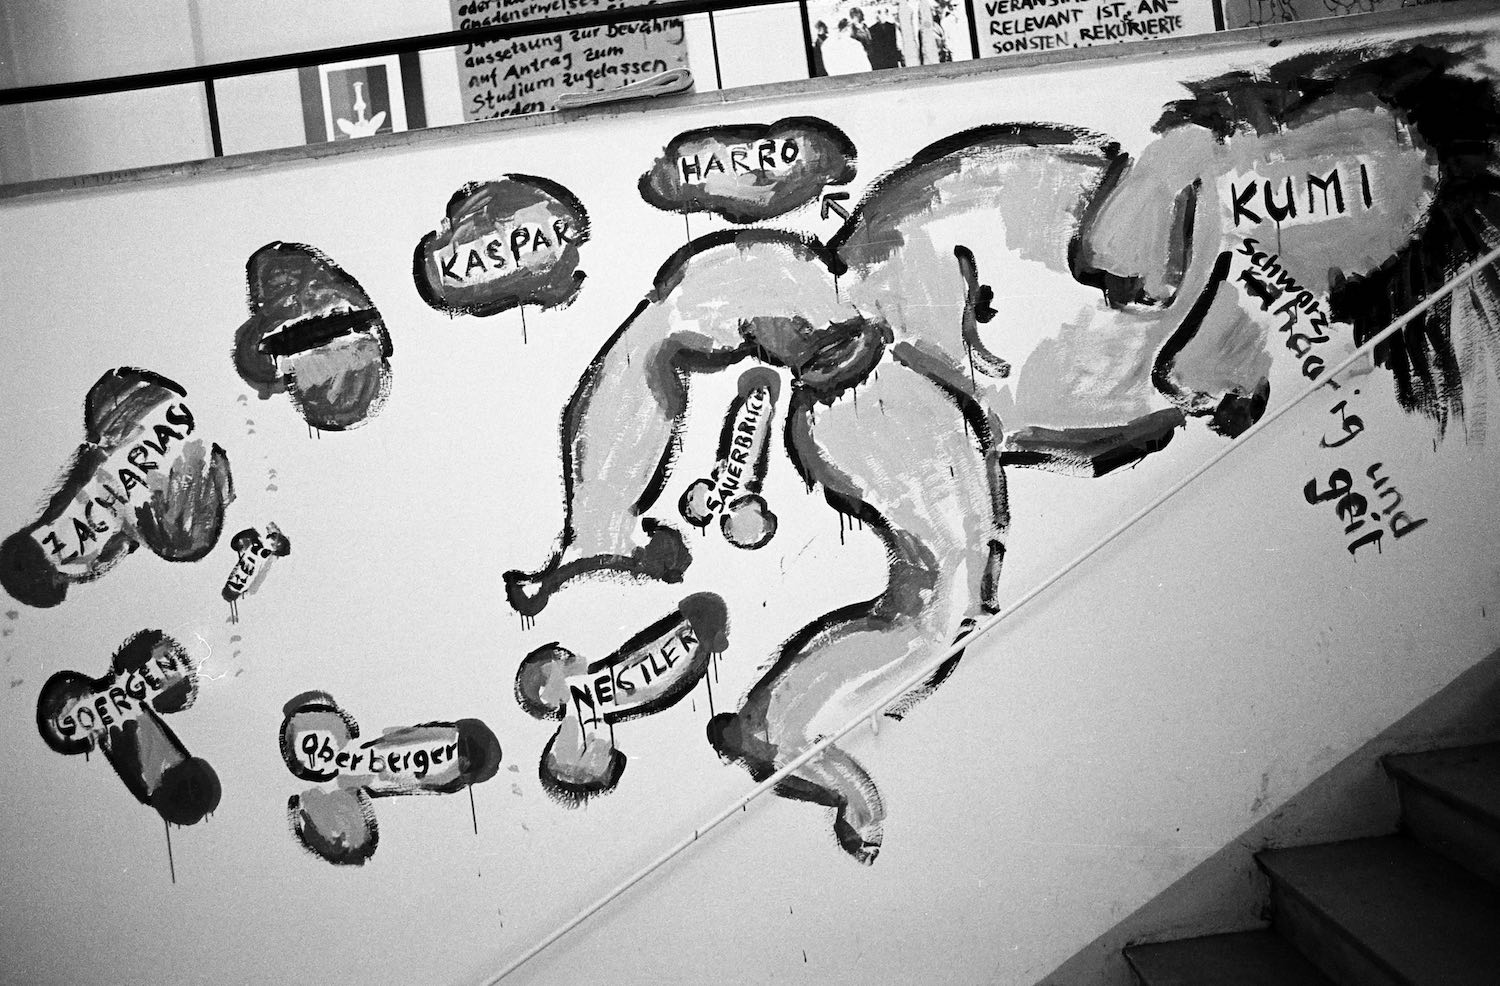 Gnadenerweises
aussetzung zur Bewährung
auf Antrag zum
Studium zugelassen
werden.
RELEVANT IST, AN-
SONSTEN REKURIERTE
HARRO
KUMI
KASPAR
schwarz
haarig
geil
und
ZACHARIAS
SAUERBRUCH
KLEIN
GOERGEN
NESTLER
Oberberger